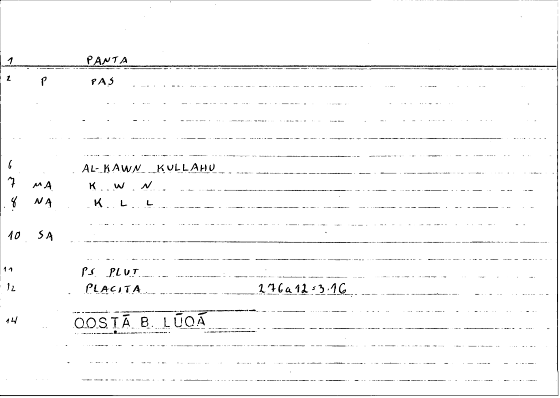 1 PANTA
2 P PAS
6 AL-KAWN KULLAHU
7 MA K W N
8 NA K L L
10 SA
11 PS PLUT
12 PLACITA 276a12=3.16
14 QOSṬĀ B. LŪQĀ